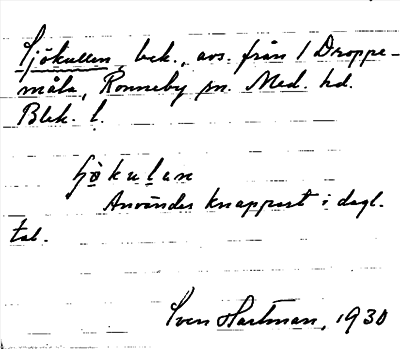 Sjökullen, bek., avs. från 1 Droppe-
måla, Ronneby sn. Med. hd.
Blek. l.
ſjö̀kulan
Användes knappast i dagl.
tal.
Sven Hartman, 1930